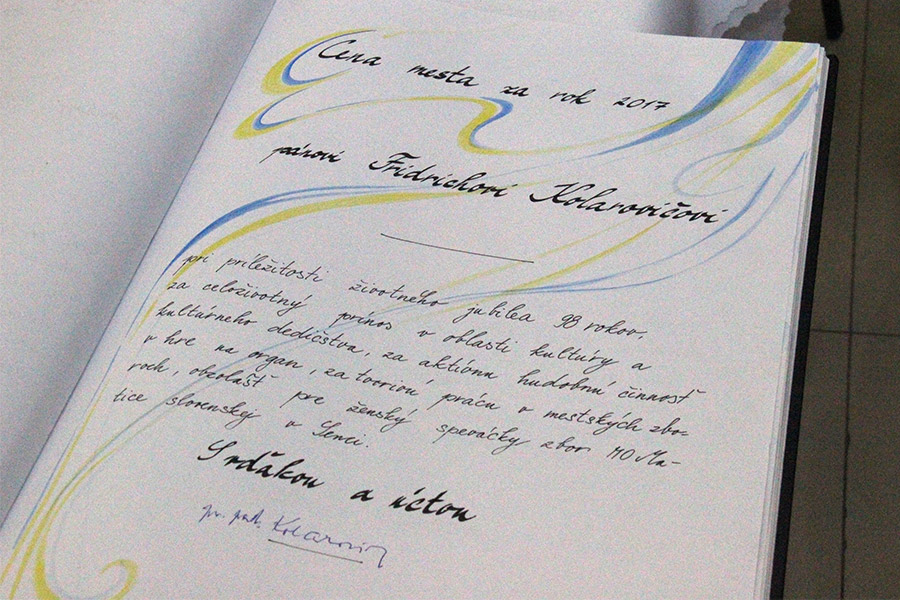 Cena mesta za rok 2017
pánovi Fridrichovi Kolarovičovi
pri príležitosti životného jubilea 98 rokov,
za celoživotný prínos v oblasti kultúry a
kultúrneho dedičstva, za aktívnu hudobnú činnosť
v hre na organ, za tvorivú prácu v mestských zbo-
roch, obzvlášť pre ženský spevácky zbor MO Ma-
tice slovenskej v Senci.
S vďakou a úctou
Kolarovič